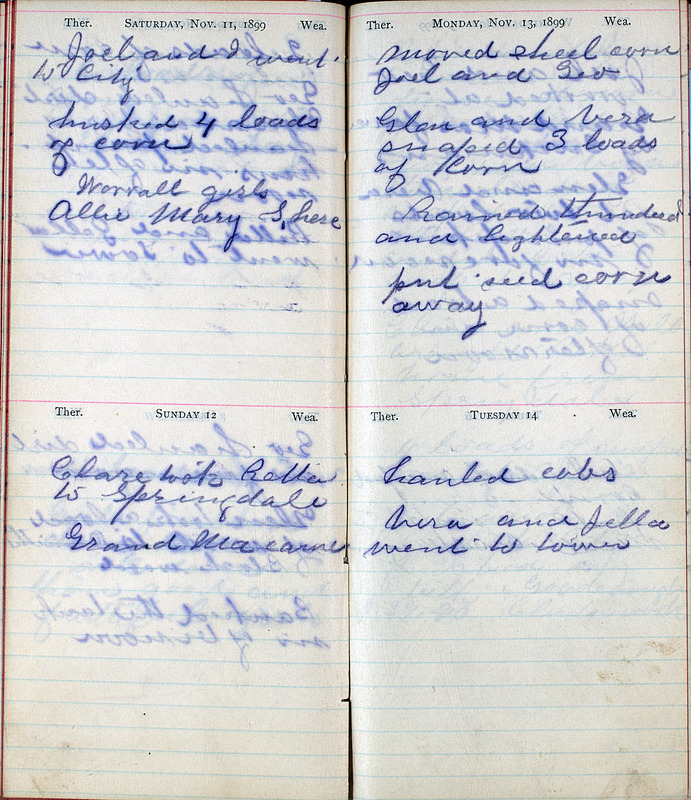 Ther. SATURDAY, NOV. 11, 1899 Wea.
Joel and I went
to City
husked 4 loads
of corn
Worrall girls
Allie Mary S, here
Ther. SUNDAY 12 Wea.
took Letta
to Springdale
Grand Ma came
Ther. MONDAY, NOV. 13, 1899 Wea.
moved shel corn
Joel and Geo
Glen and Vera
snaped 3 loads
of Korn
Rained thundered
and lightened
put seed corn
away
Ther. TUESDAY 14 Wea.
hauled cobs
Vera and
went to town